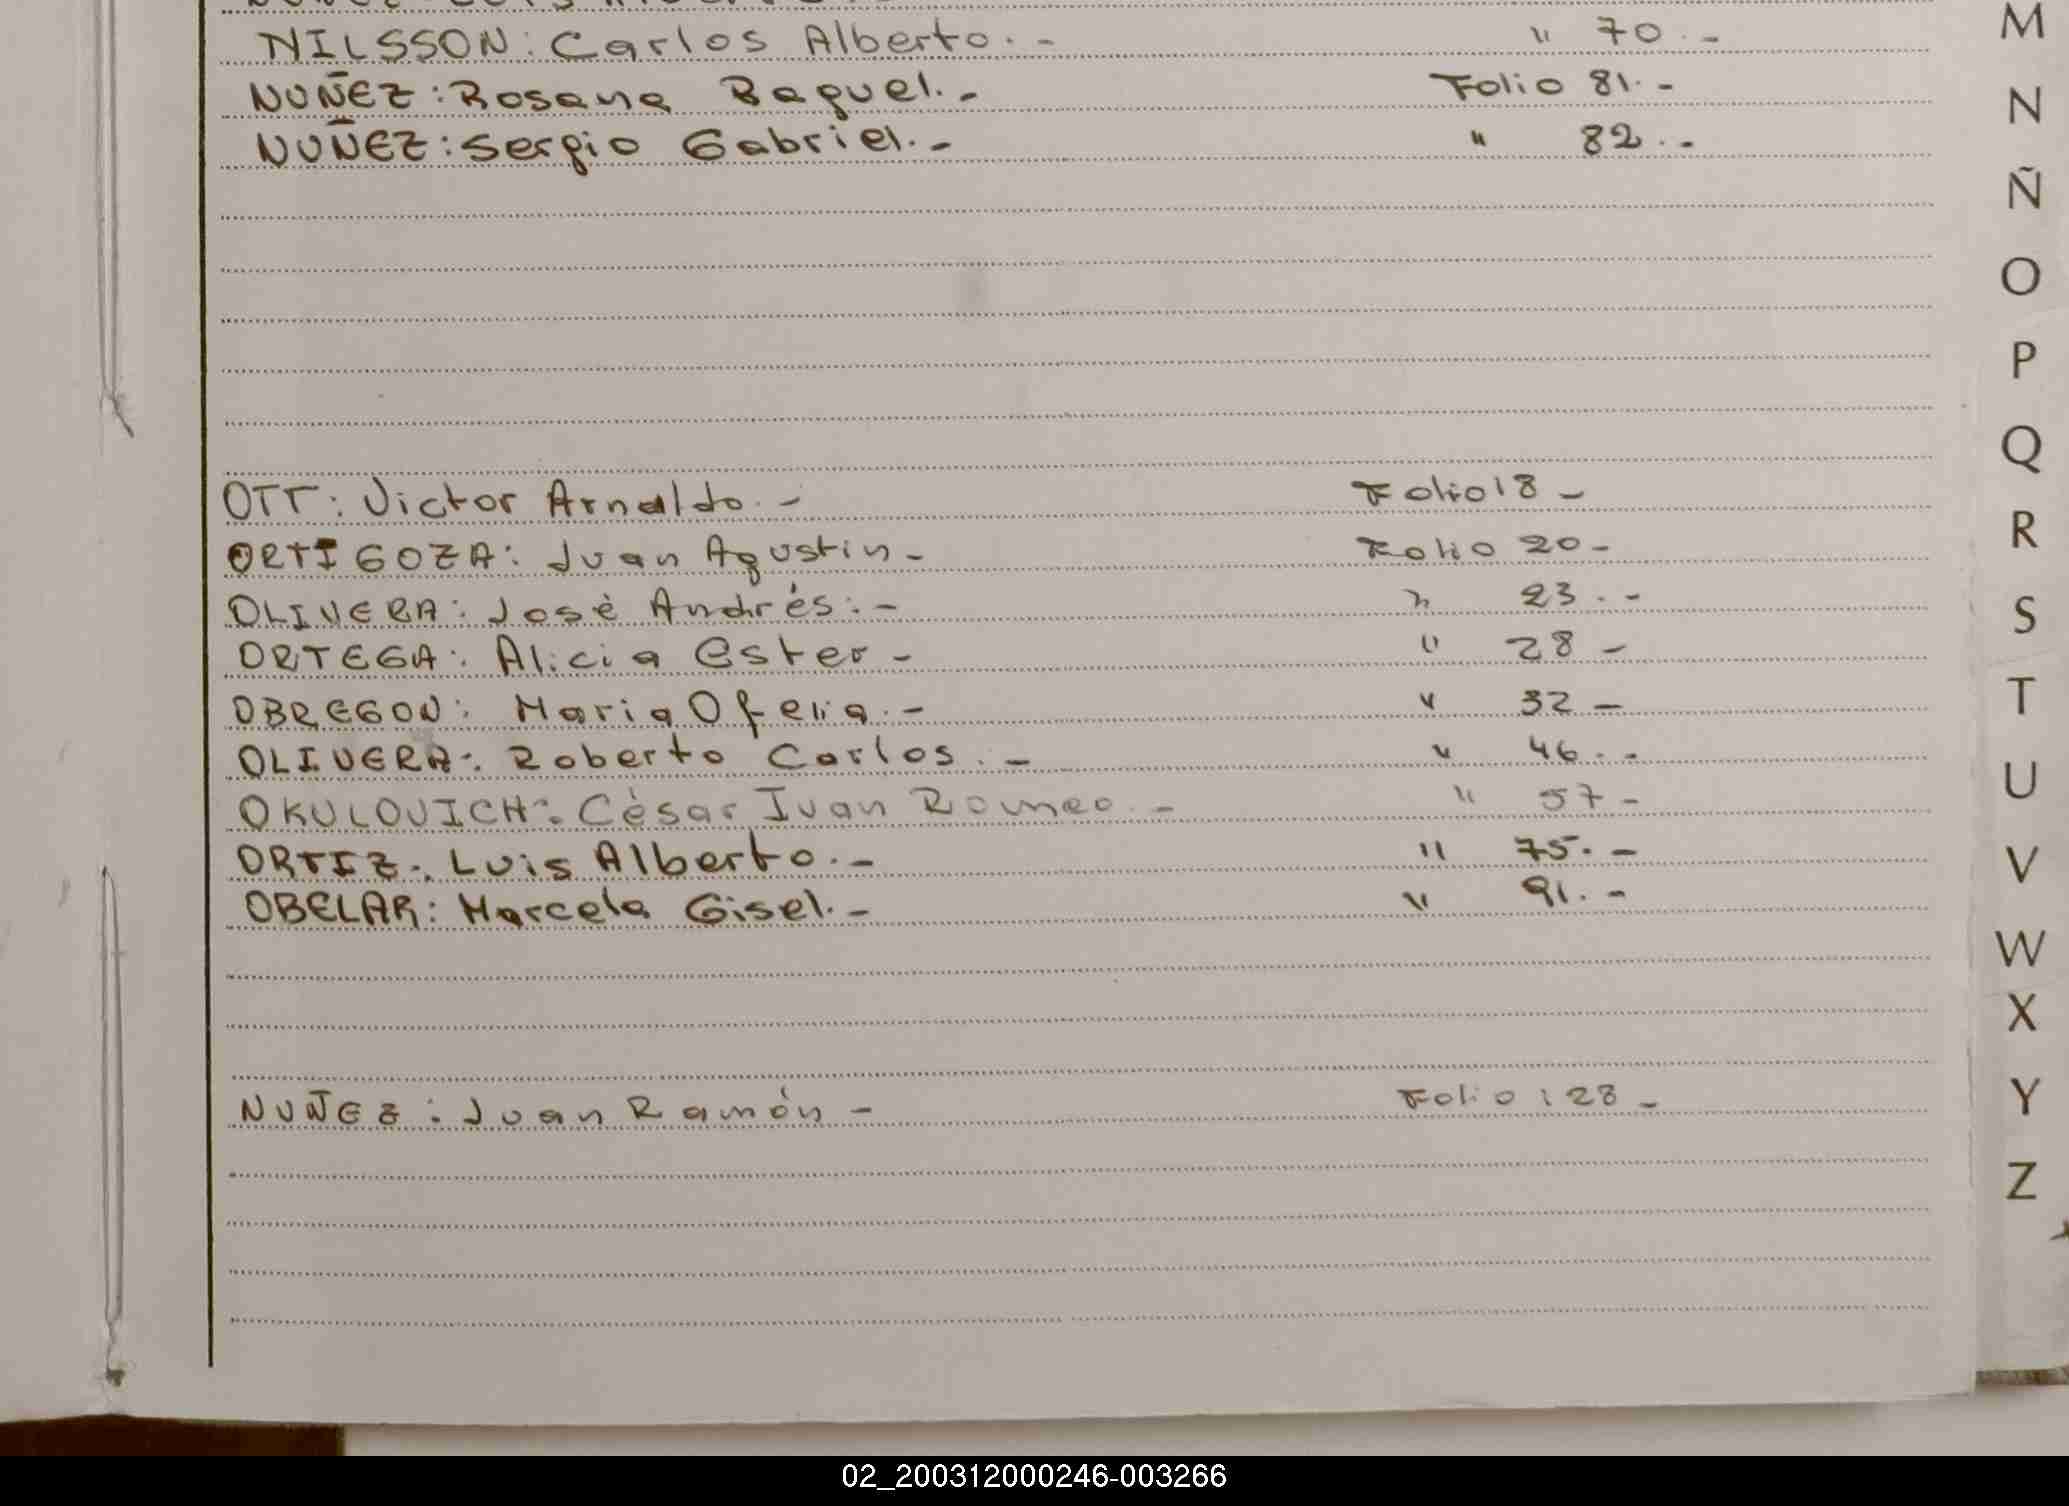 NILSSON: Carlos Alberto.- " 70.-
NUÑEZ: Rosana Raquel.- Folio 81.-
NUÑEZ: Sergio Gabriel.- " 82.-
OTT: Victor Arnaldo.- Folio 18-
ORTIGOZA: Juan Agustin- Folio 20-
OLIVERA: José Andrés.- " 23.-
ORTEGA: Alicia Ester- " 28-
OBREGON: Maria Ofelia.- " 32-
OLIVERA: Roberto Carlos.- " 46.-
OKULOVICH: César Ivan Romeo.- " 57-
ORTIZ: Luis Alberto.- " 75.-
OBELAR: Marcela Gisel.- " 91.-
NUÑEZ: Juan Ramón- Folio: 28-
M
N
Ñ
O
P
Q
R
S
T
U
V
W
X
Y
Z
02_200312000246-003266